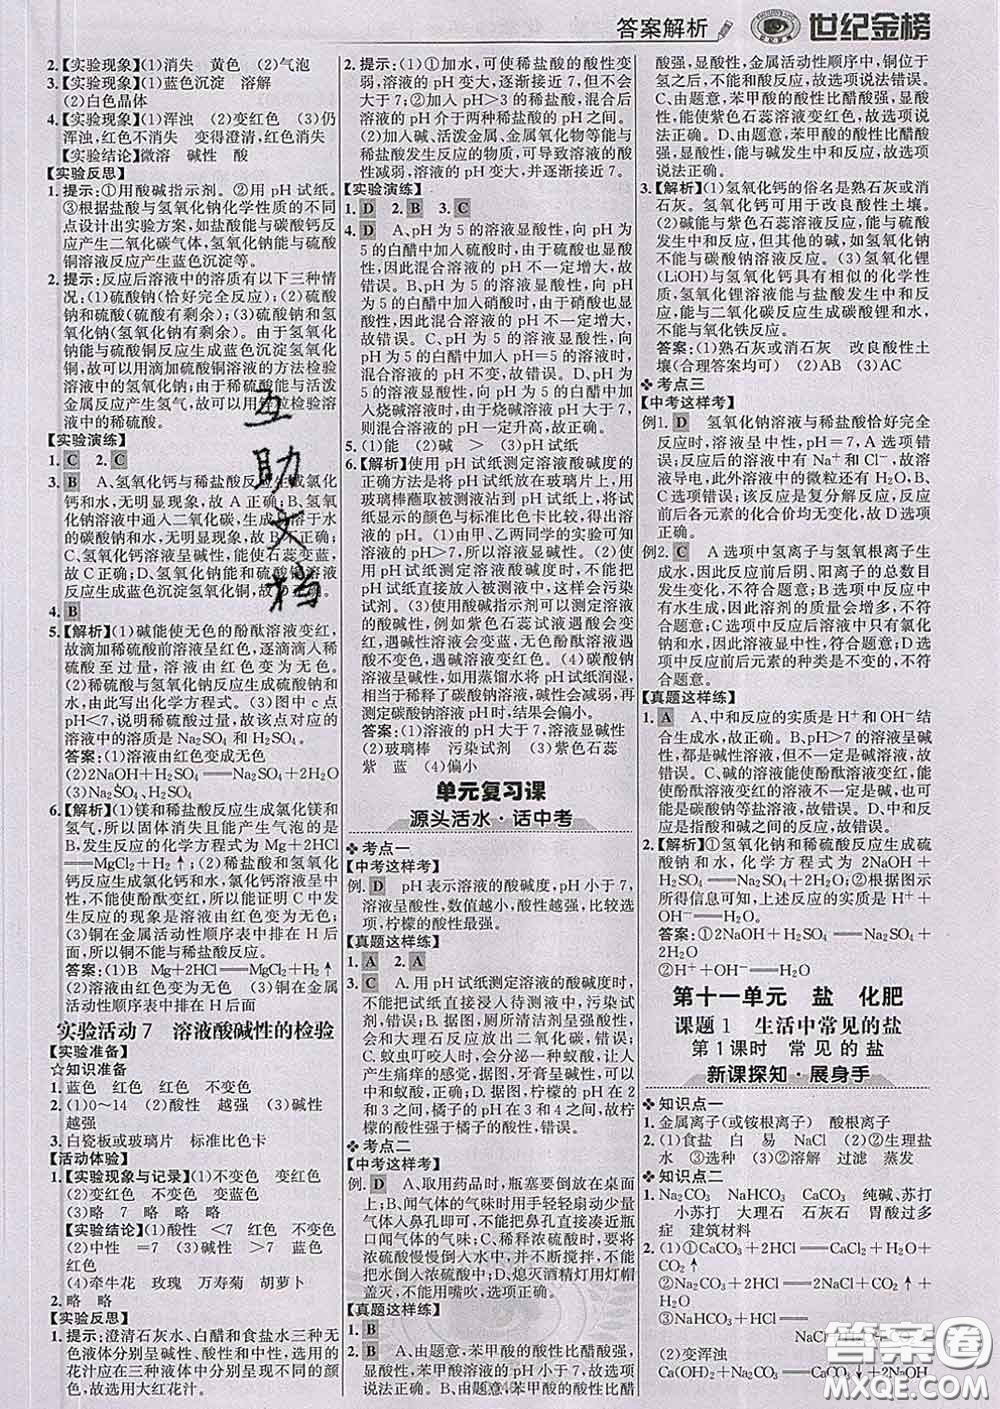 答案解析
世纪金榜
2.【实验现象】(1)消失　黄色　(2)气泡
3.【实验现象】(1)蓝色沉淀　溶解
(2)白色晶体
4.【实验现象】(1)浑浊　(2)变红色　(3)仍
浑浊,红色不消失　变得澄清,红色消失
【实验结论】微溶　碱性　酸
【实验反思】
1.提示:①用酸碱指示剂。②用pH试纸。
③根据盐酸与氢氧化钠化学性质的不同
点设计出实验方案,如盐酸能与碳酸钙反
应产生二氧化碳气体,氢氧化钠能与硫酸
铜溶液反应产生蓝色沉淀等。
2.提示:反应后溶液中的溶质有以下三种情
况:(1)硫酸钠(恰好完全反应);(2)硫酸
钠和硫酸(硫酸有剩余);(3)硫酸钠和氢
氧化钠(氢氧化钠有剩余)。由于氢氧化
钠能与硫酸铜反应生成蓝色沉淀氢氧化
铜,故可以用滴加硫酸铜溶液的方法检验
溶液中的氢氧化钠;由于稀硫酸能与活泼
金属反应产生氢气,故可以用锌粒检验溶
液中的稀硫酸。
【实验演练】
1. C　2. C
3. B　A、氢氧化钙与稀盐酸反应生成氯化
钙和水,无明显现象,故A正确;B、氢氧
化钠溶液中通入二氧化碳,生成易溶于水
的碳酸钠和水,无明显现象,故B错误;
C、氢氧化钙溶液呈碱性,能使石蕊变蓝,
故C正确;D、氢氧化钠能和硫酸铜溶液
反应生成蓝色沉淀氢氧化铜,故D正确。
4. B
5.【解析】(1)碱能使无色的酚酞溶液变红,
故滴加稀硫酸前溶液呈红色,逐滴滴入稀
硫酸至过量,溶液由红色变为无色。
(2)稀硫酸与氢氧化钠反应生成硫酸钠和
水,由此写出化学方程式。(3)图中c点
pH<7,说明稀硫酸过量,故该点对应的
溶液中的溶质是Na₂SO₄和H₂SO₄。
答案:(1)溶液由红色变成无色
(2)2NaOH+H₂SO₄══Na₂SO₄+2H₂O
(3)Na₂SO₄和H₂SO₄
6.【解析】(1)镁和稀盐酸反应生成氯化镁和
氢气,所以固体消失且能产生气泡的是
B,发生反应的化学方程式为Mg+2HCl
══MgCl₂+H₂↑;(2)稀盐酸和氢氧化
钙反应生成氯化钙和水,氯化钙溶液呈中
性,不能使酚酞变红,所以能证明C中发
生反应的现象是溶液由红色变为无色;
(3)铜在金属活动性顺序表中排在H后
面,所以铜不能与稀盐酸反应。
答案:(1)B　Mg+2HCl══MgCl₂+H₂↑
(2)溶液由红色变为无色　(3)铜在金属
活动性顺序表中排在H后面
实验活动7　溶液酸碱性的检验
【实验准备】
☆知识准备
1.蓝色　红色　红色　不变色
2.(1)0~14　(2)酸性　越强　(3)碱性
越强
3.白瓷板或玻璃片　标准比色卡
【活动体验】
1.【实验现象与记录】(1)不变色　变红色
(2)变红色　不变色　变蓝色
(3)略　7　略　略　略
【实验结论】(1)酸性　<7　红色　不变色
(2)中性　=7　(3)碱性　>7　蓝色
红色
(4)牵牛花　玫瑰　万寿菊　胡萝卜
2.略　略
【实验反思】
1.提示:澄清石灰水、白醋和食盐水三种无
色液体分别呈碱性、酸性和中性,选用的
花汁应在三种液体中分别呈现不同颜色,
故选用大红花汁。
2.提示:(1)①加水,可使稀盐酸的酸性变
弱,溶液的pH变大,逐渐接近7,但不会
大于7;②加入pH>3的稀盐酸,混合后
溶液的pH介于两种稀盐酸的pH之间。
(2)加入碱、活泼金属、金属氧化物等能与
稀盐酸发生反应的物质,可导致溶液的酸
性减弱,溶液的pH变大,并逐渐接近7。
【实验演练】
1. D　2. B　3. C
4. D　A、pH为5的溶液显酸性,向pH为
5的白醋中加入硫酸时,由于硫酸也显酸
性,因此混合溶液的pH不一定增大,故
错误。B、pH为5的溶液显酸性,向pH
为5的白醋中加入白醋时,由于白醋也显
酸性,因此混合溶液的pH不一定增大,
故错误。C、pH为5的溶液显酸性,向
pH为5的白醋中加入pH=5的溶液时,
pH不变,故错误。D、pH为5的溶液显
酸性,向pH为5的白醋中加
入烧碱溶液时,由于烧碱溶液pH大于7,则
溶液的pH一定升高,故正确。
5.(1)能　(2)碱　>　(3)pH试纸
6.【解析】使用pH试纸测定溶液酸碱度的
正确方法是将pH试纸放在玻璃片上,用
玻璃棒蘸取被测液沾到pH试纸上,将试
纸显示的颜色与标准比色卡比较,得出溶
液的pH。(1)由甲、乙两同学的实验可知
溶液的pH>7,所以溶液显碱性。(2)使
用pH试纸测定溶液酸碱度时,不能将试
纸直接放入被测液中,这样会污染试
剂。(3)使用酸碱指示剂可以测定溶
液的酸碱性。例如紫色石蕊试液遇酸会变
红,遇碱性溶液会变蓝,无色酚酞溶液遇酸
不变色、遇碱溶液变红色。(4)碳酸钠
溶液呈碱性,如用蒸馏水将pH试纸润湿,
相当于稀释了碳酸钠溶液,碱性会减弱,再
测定碳酸钠溶液pH时,结果会偏小。
答案:(1)溶液的pH大于7,溶液显碱性
(2)玻璃棒　污染试剂　(3)紫色石蕊
紫　蓝　(4)偏小
单元复习课
源头活水·话中考
考点一
【中考这样考】
例. D　pH表示溶液的酸碱度,pH小于7,
溶液呈酸性,数值越小,酸性越强,比较选
项,柠檬的酸性最强。
【真题这样练】
1. A　2. A
3. C　A、用pH试纸测定溶液的酸碱度时,
不能把试纸直接浸入待测溶液中,说法错
误。B、厕所清洁剂显酸性,会
和大理石反应放出二氧化碳,故错误。
C、蚊虫叮咬人时,会向人体注入蚁酸,让人
产生痛痒的感觉,牙膏呈碱性,可以和
酸反应,故正确。D、据图,柠檬的pH在2
和3之间,橘子的pH在3和4之间,故柠
檬的酸性强于橘子的酸性,故错误。
考点二
【中考这样考】
例. D　A、取用药品时,瓶塞要倒放在桌面
上;B、闻气体的气味时用手轻轻扇动少量气
体入鼻孔即可,不能将鼻孔凑近集气瓶
口闻气体的气味;C、稀释浓硫酸时,要将
浓硫酸慢慢倒入水中,并不断搅拌,不能
把水倒入浓硫酸中;D、熄灭酒精灯用灯帽
盖灭,不能用嘴吹,选项正确。
【真题这样练】
1. B
2. A　A、由题意,苯甲酸的酸性比醋酸强,
所以苯甲酸溶液的酸性不一定强,故选项
说法正确。B、由题意,苯甲酸的酸性比醋
酸强,金属活动性顺序中,铜位于
氢之后,不能和酸反应,故选项说法错误。
C、由题意,苯甲酸的酸性比醋酸强,
能使紫色石蕊溶液变红色,故选项
说法正确。D、由题意,苯甲酸的酸性比醋酸
强,能与碱发生中和反应,故选项说法正确。
3.【解析】(1)氢氧化钙的俗名是熟石灰或消
石灰。氢氧化钙可用于改良酸性土壤。
(2)碱能与紫色石蕊溶液反应,能与硫酸
发生中和反应,但其他的碱,如氢氧化钠
不能与碳酸钠溶液反应。(3)氢氧化锂
(LiOH)与氢氧化钙具有相似的化学性
质,氢氧化锂溶液能与盐酸发生中和反
应,能与二氧化碳反应生成碳酸锂和水,
不能与氧化铁反应。
答案:(1)熟石灰或消石灰　改良酸性土
壤(合理答案均可)　(2)AB　(3)AC
考点三
【中考这样考】
例1. D　氢氧化钠溶液与稀盐酸恰好完全
反应时,溶液呈中性,pH=7,A选项错
误;反应后溶液中有Na⁺和Cl⁻,故使溶
液导电,此外溶液中的微粒还有H₂O,B、
C选项错误;该反应是复分解反应,反应
前后各元素的化合价均无变化,故D选项
正确。
例2. C　A选项中氢离子与氢氧根离子生
成水,因此反应前后阴、阳离子的总数目
发生变化,不符合题意;B选项中反应中
有水生成,不符合题意;C选项中由于
反应后溶液中只有氯化钠
和水,因此溶液显中性,符合题意;D选
项中反应前后元素的种类是不变的,不符
合题意。
【真题这样练】
1. A　A、中和反应的实质是H⁺和OH⁻结
合生成水,故正确。B、pH>7的溶液呈
碱性,都是碱性溶液,但不一定是碱溶液,故
错误。C、碱的溶液能使酚酞溶液变红色,
但能使酚酞溶液变红的不一定是碱,
如碳酸钠等盐溶液,故错误。D、中和反应
是指酸和碱之间的反应,故错误。
2.【解析】①氢氧化钠和硫酸反应生成硫
酸钠和水,化学方程式为2NaOH+
H₂SO₄══Na₂SO₄+2H₂O。②根据图示
所得信息可知,上述反应的实质是H⁺
+OH⁻══H₂O。
答案:①2NaOH+H₂SO₄══Na₂SO₄
+2H₂O
②H⁺+OH⁻══H₂O
第十一单元　盐　化肥
课题1　生活中常见的盐
第1课时　常见的盐
新课探知·展身手
知识点一
1.金属离子(或铵根离子)　酸根离子
2.(1)食盐　白　易　NaCl　(2)②生理盐
水　③选种　(3)②溶解　过滤　蒸发
知识点二
1.Na₂CO₃　NaHCO₃　CaCO₃　纯碱、苏打
小苏打　大理石　石灰石　胃酸过多
症　建筑材料
2.(1)①CaCO₃+2HCl══CaCl₂+H₂O+
CO₂↑
②Na₂CO₃+2HCl══2NaCl+CO₂↑+
H₂O
③NaHCO₃+HCl══NaCl+CO₂↑+H₂O
(2)变浑浊
Ca(OH)₂+Na₂CO₃══CaCO₃↓+2NaOH
互助文档
答案圈
MXQE.COM